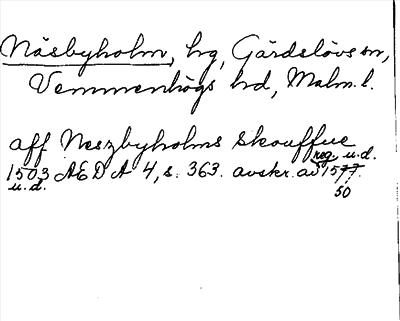 Näsbyholm, hg, Gärdslövs sn,
Vemmenhögs hd, Malm. l.
aff Neszbyholms skouffue
reg. u.d.
1503 AEDA 4, s. 363. avskr. av 1577.
u.d. 50